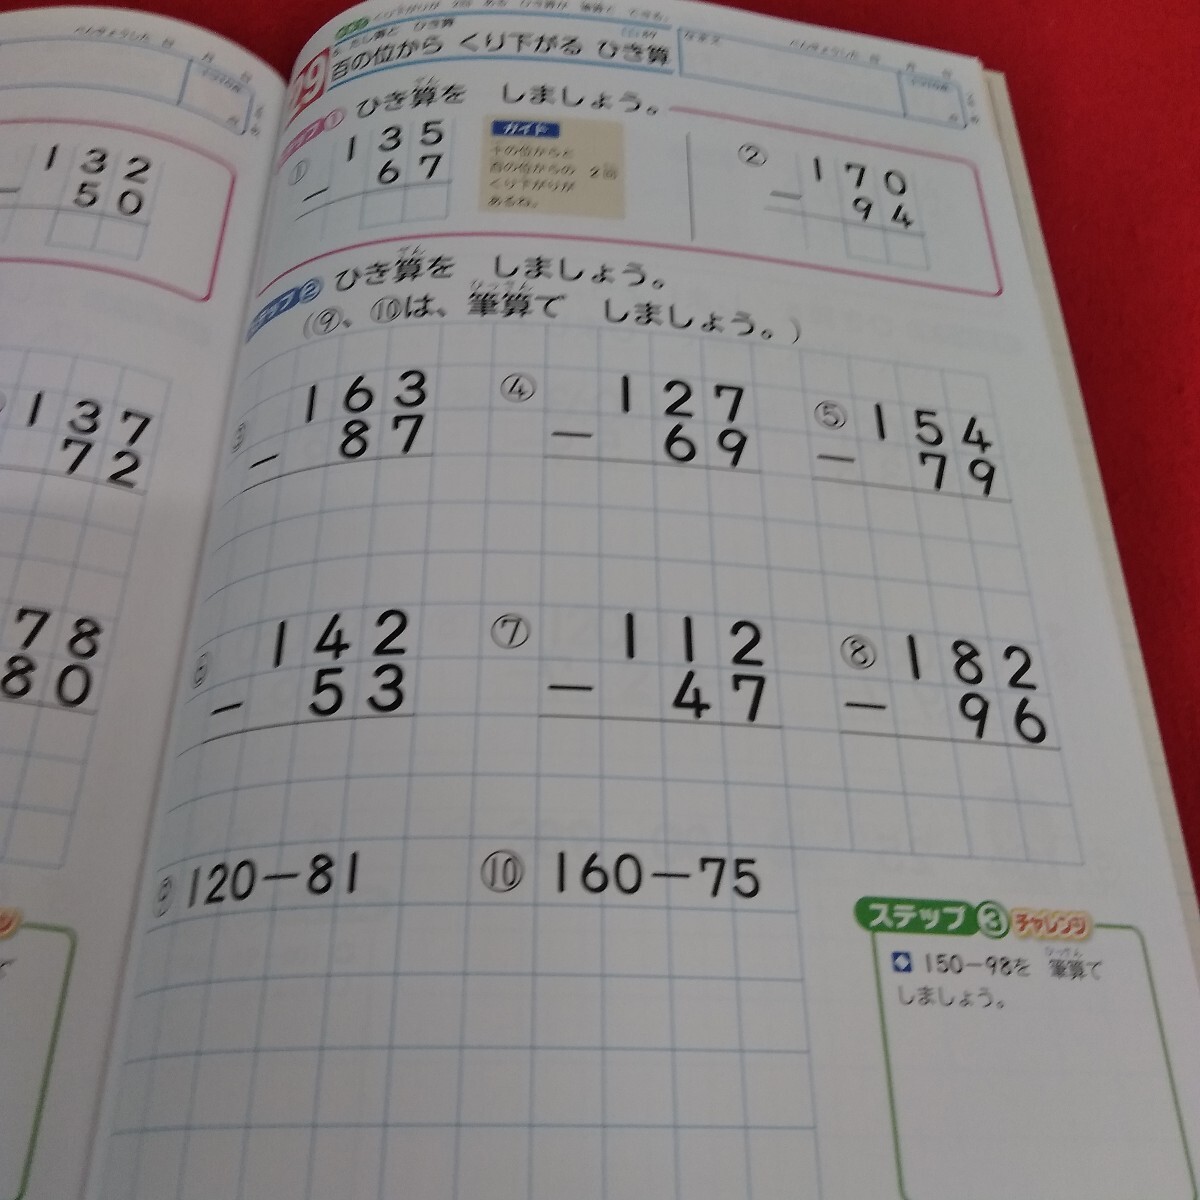 132
－ 50
137
72
78
80
くり下がりが 2回 ある ひき算が 筆算で できる。
たし算と ひき算
29
百の位から くり下がる ひき算
なまえ
べんきょうした 日 月 日
ステップ① ひき算を しましょう。
① 135
－ 67
ガイド
十の位からと
百の位からの 2回
くり下がりが
あるね。
② 170
－ 94
ステップ② ひき算を しましょう。
(⑨、⑩は、筆算で しましょう。)
③ 163
－ 87
④ 127
－ 69
⑤ 154
－ 79
⑥ 142
－ 53
⑦ 112
－ 47
⑧ 182
－ 96
⑨ 120－81
⑩ 160－75
ステップ③ チャレンジ
150－98を 筆算で
しましょう。